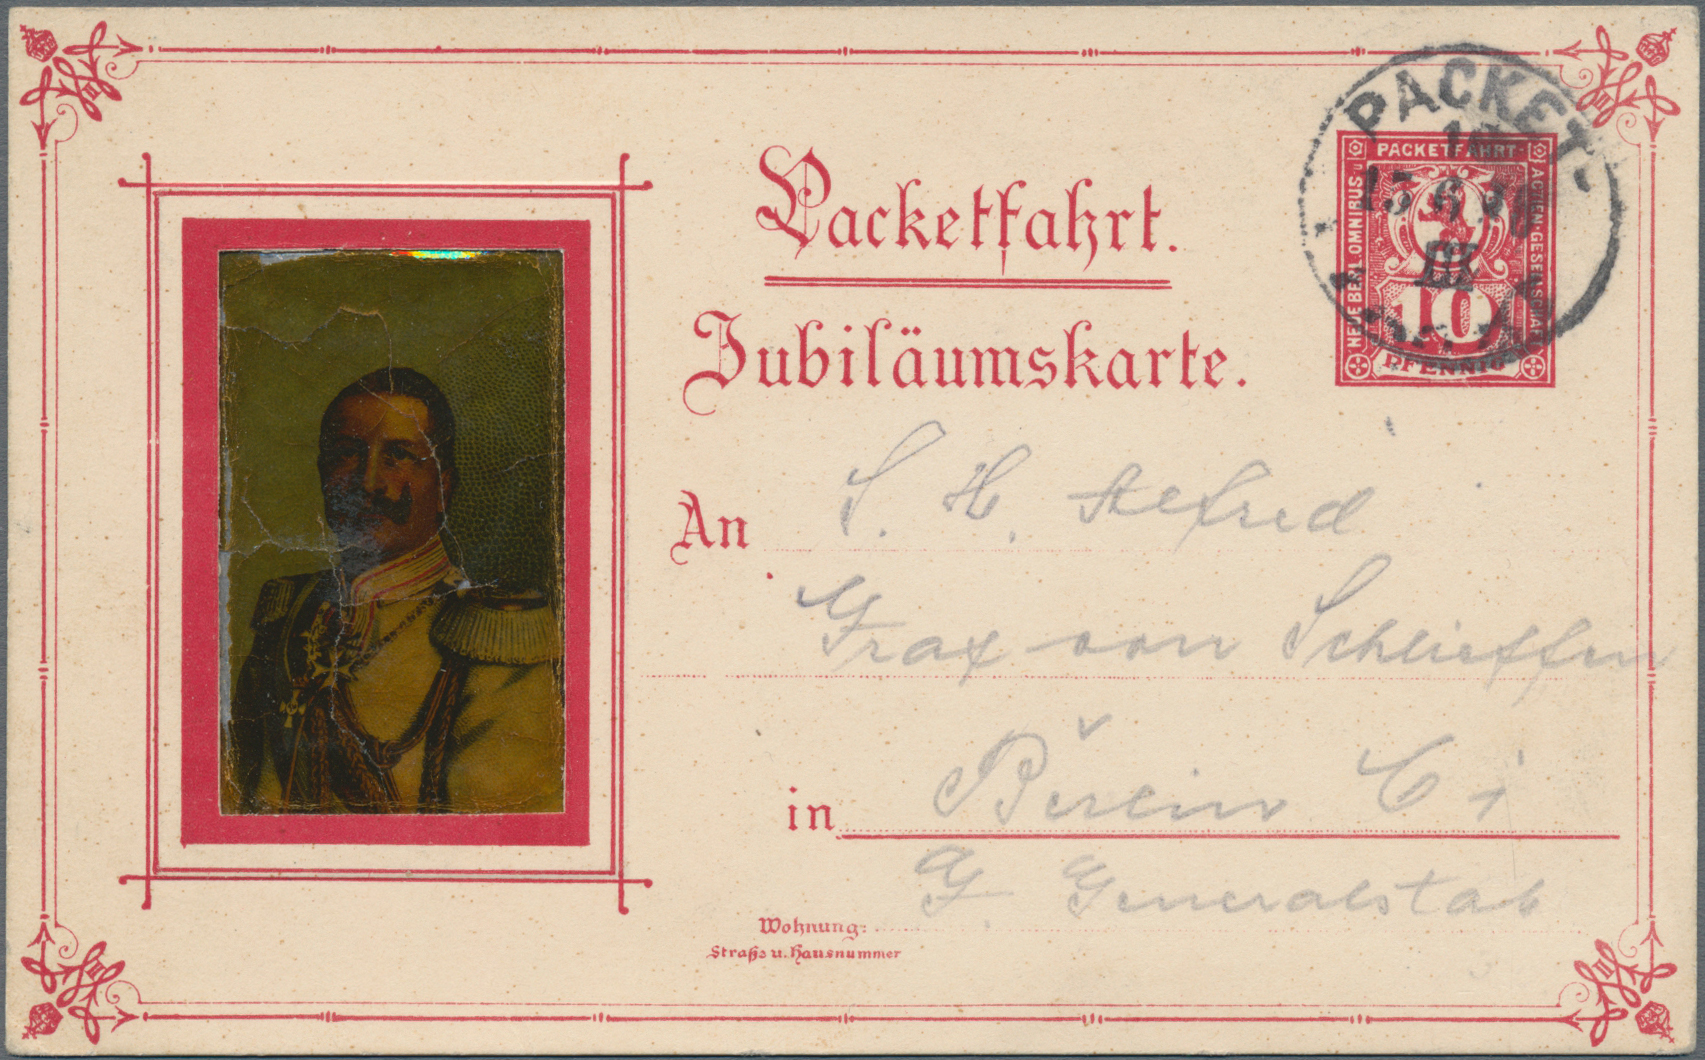 Packetfahrt.
Jubiläumskarte.
PACKET-
13 6
III
PACKETFAHRT-
ACTIEN-GESELLSCHAFT
NEUE BERL. OMNIBUS U
10
PFENNIG
An S. H. Alfred
Graf von Schlieffen
in Berlin C 1
G. Generalstab
Wohnung:
Straße u. Hausnummer